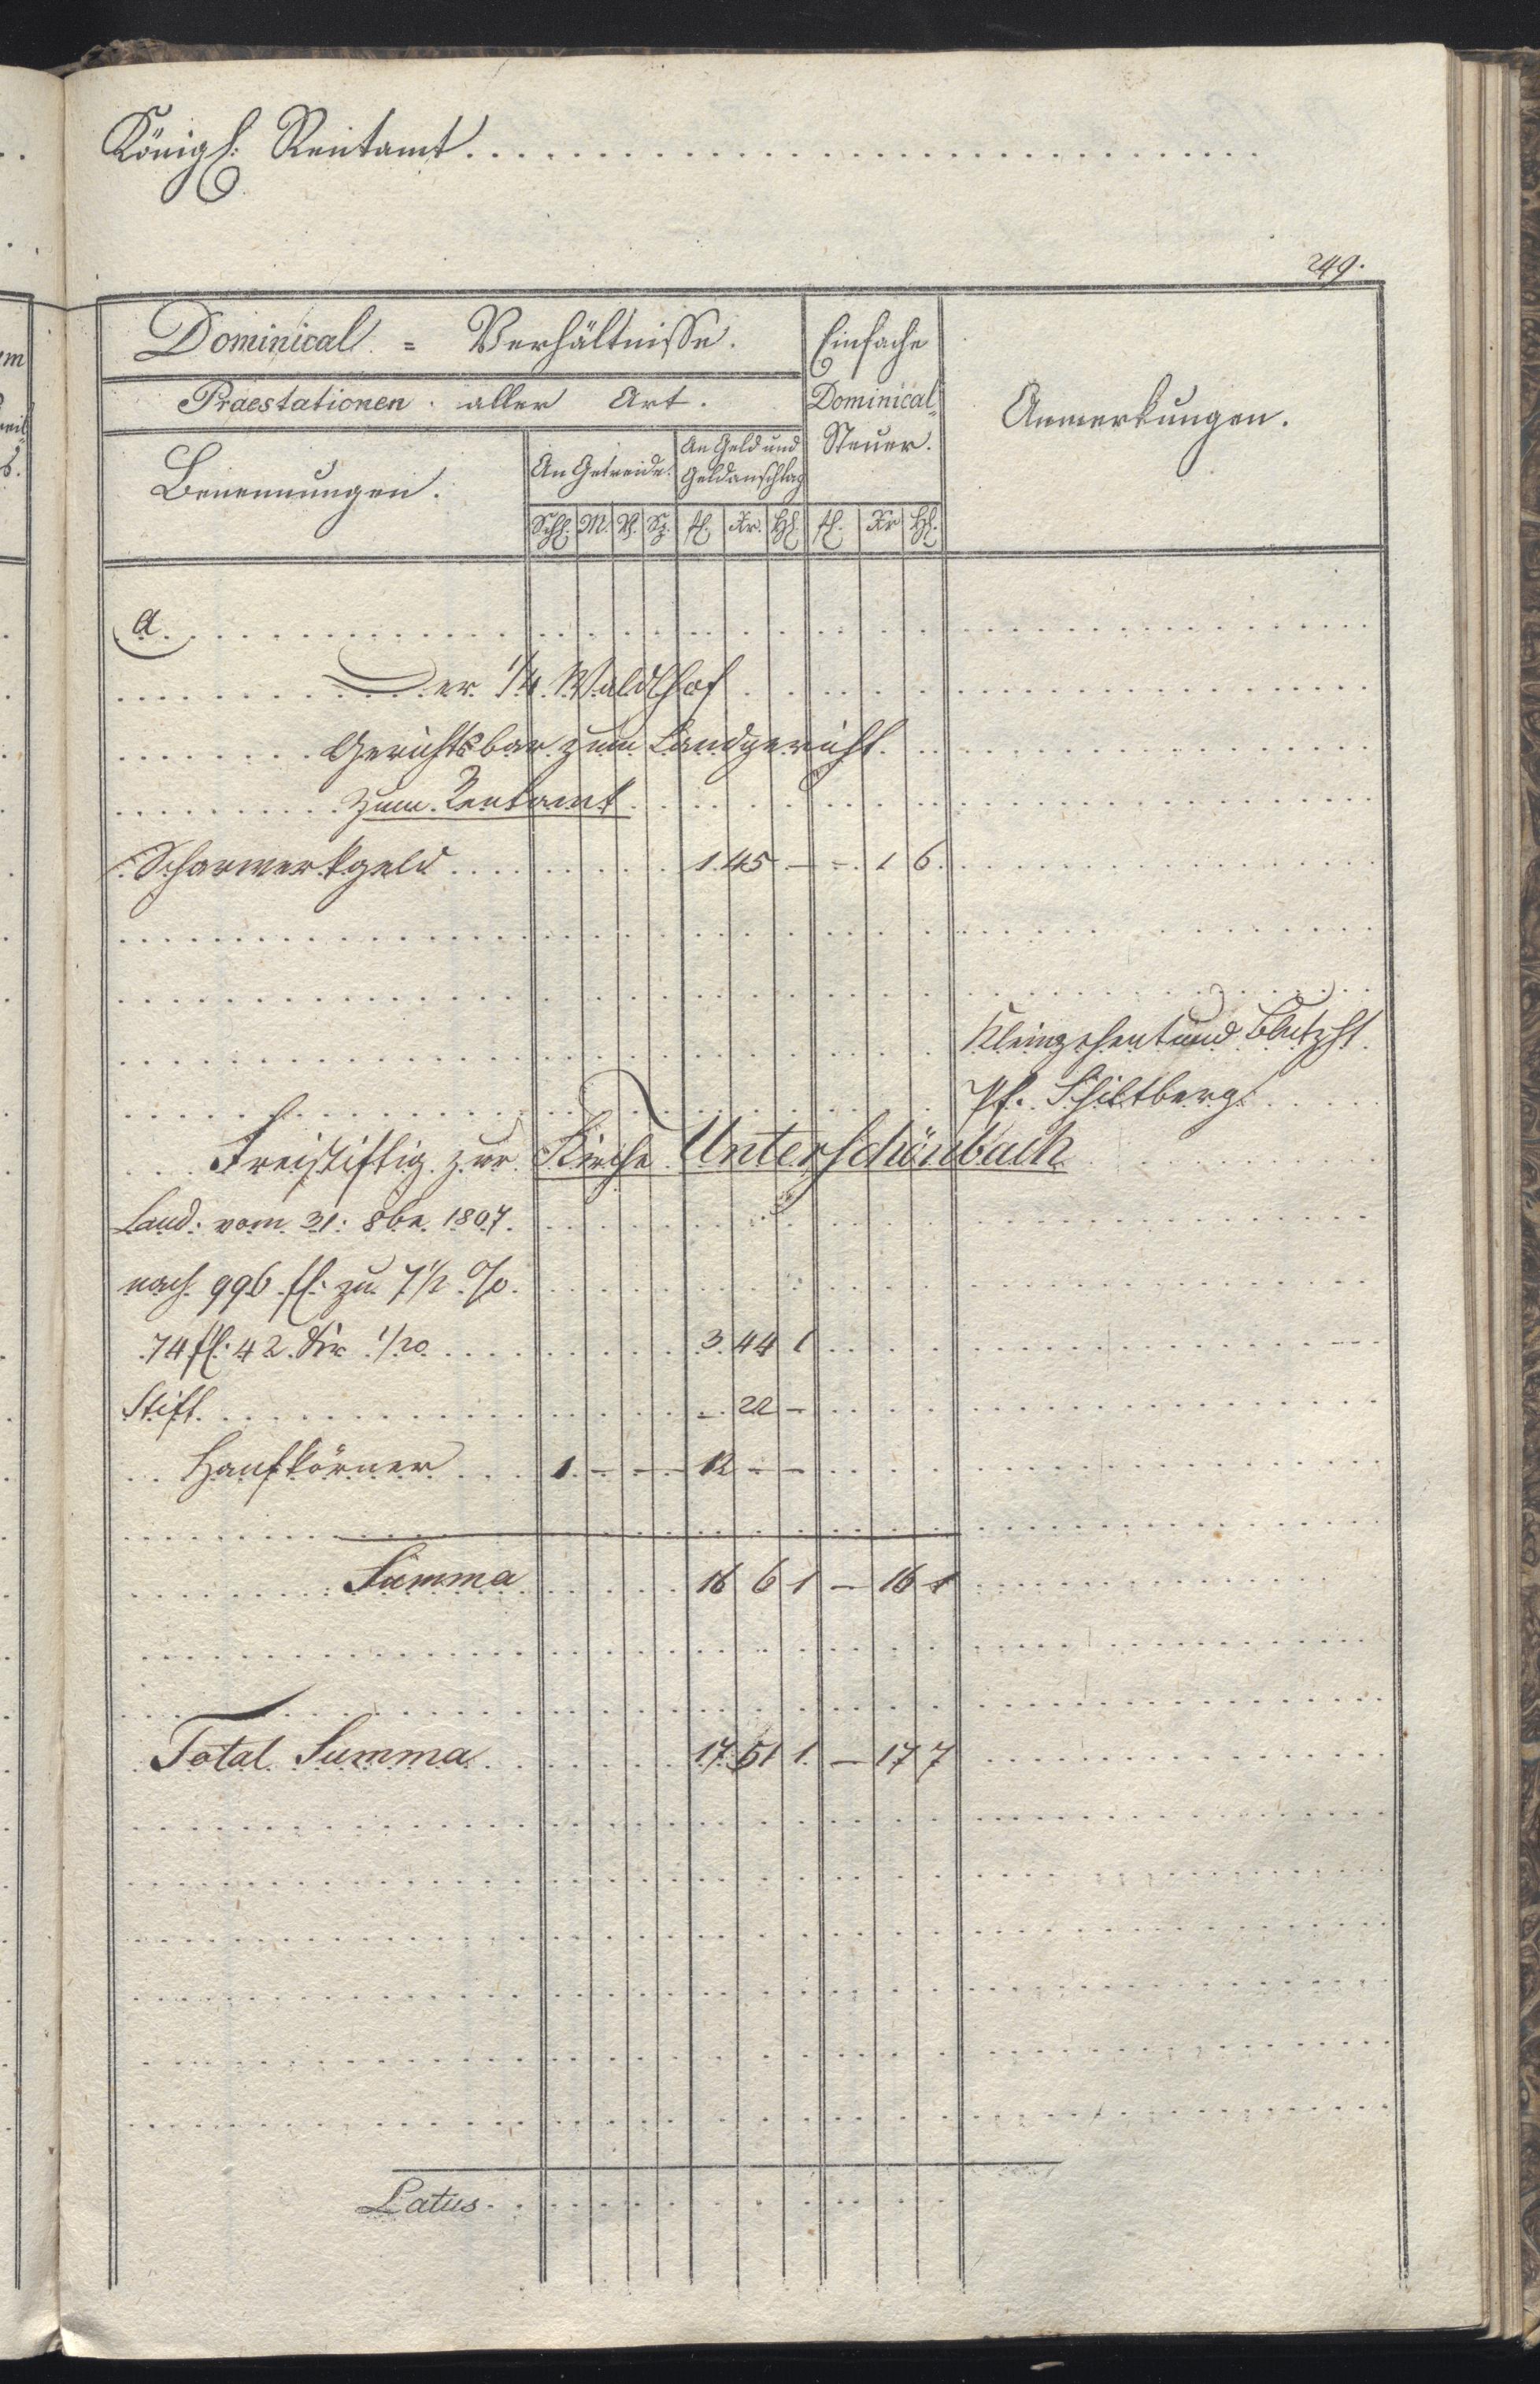 Königl: Rentamt
249.
Dominical = Verhältnisse.
Einfache Dominical-Steuer.
Anmerkungen.
Praestationen aller Art.
Benennungen.
An Getreide.
An Geld und Geldanschlag
Schl. M. V. Sz. fl. Xr. Hl. fl. Xr Hl.
a
Der 1/4 Waldlhof
Gerichtsbar zum Landgericht
zum Rentamt
Scharwerkgeld 1. 45 – – 1 6.
Kleinzehent und Blutzht
Pf. Schiltberg.
Freistiftig zur Kirche Unterschönbach
Laud: vom 31: 8be. 1807.
nach 996 fl. zu 7 1/2 %
74 fl: 42 Kr 1/20 3. 44 1
Stift – 22 –
Hanfkörner 1. – – – 12 – –
Summa 16 6 1 – 16 1
Total Summa 17 51 1 – 17 7
Latus